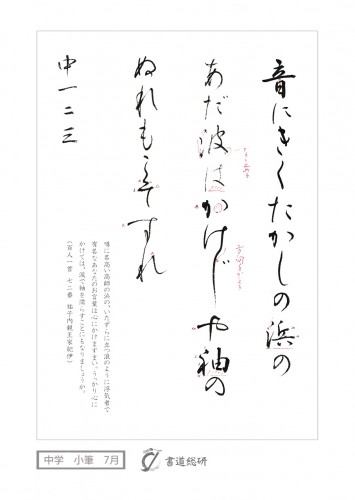 音にきくたかしの浜の
あだ波はかけじや袖の
ぬれもこそすれ
中一 二 三
噂に名高い高師の浜の、いたずらに立つ浪のように浮気者で
有名なあなたのお言葉は心にかけますまい。うっかり心に
かけては、涙で袖を濡らすことにもなりましょうから。
(百人一首 七二番 祐子内親王家紀伊)
中学 小筆 7月
書道総研